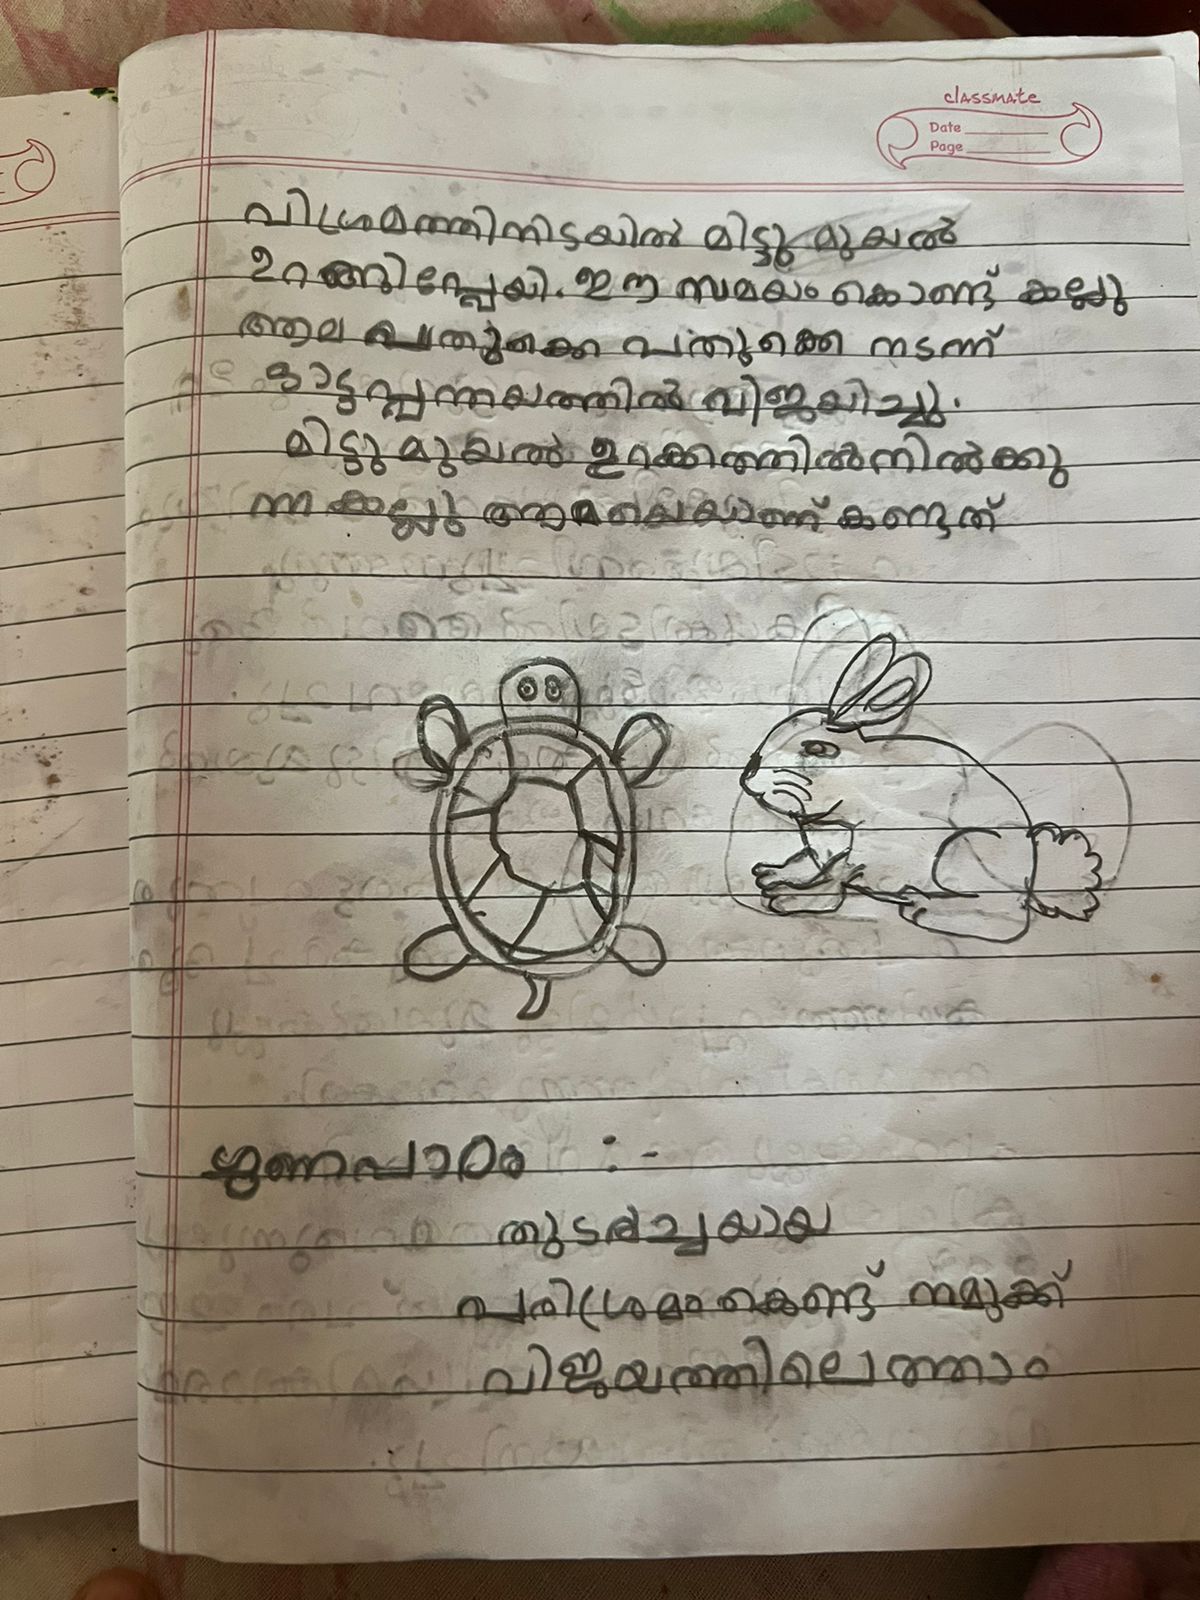 classmate
Date
Page
വിശ്രമത്തിനിടയിൽ മിട്ടു മുയൽ
ഉറങ്ങി പ്പോയി. ഈ സമയം കൊണ്ട് കല്ലു
ആമ പതുക്കെ പതുക്കെ നടന്ന്
ഓട്ടപ്പന്തയത്തിൽ വിജയിച്ചു.
മിട്ടു മുയൽ ഉറക്കത്തിൽനിൽക്കു
ന്ന കല്ലു ആമയെയാണ് കണ്ടത്
ഗുണപാഠം :-
തുടർച്ചയായ
പരിശ്രമംകൊണ്ട് നമുക്ക്
വിജയത്തിലെത്താം